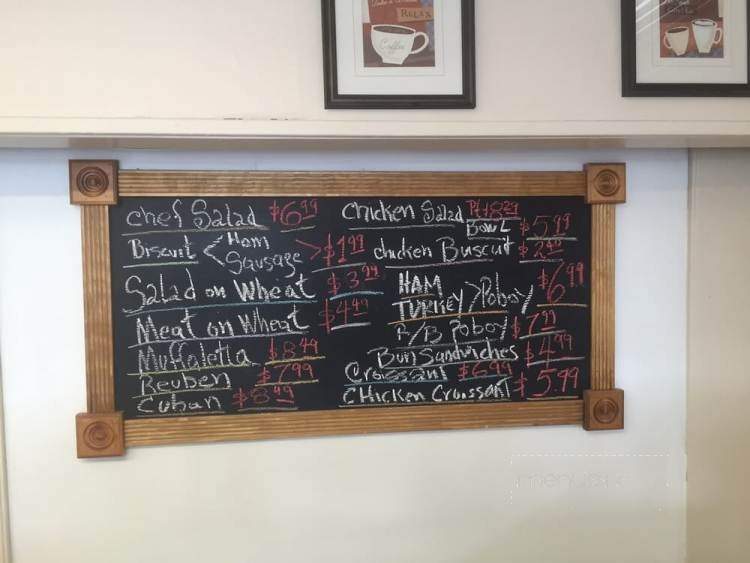 RELAX
Coffee
chef Salad $6.99
Biscuit < Ham Sausage > $1.99
Salad on Wheat $3.99
Meat on Wheat $4.49
Muffaletta $8.49
Reuben $7.99
Cuban $8.49
Chicken Salad Pt $8.29
Bowl $5.99
chicken Buscuit $2.49
HAM
TURKEY > Poboy $6.99
R/B Poboy $7.99
Bun Sandwiches $4.99
Croissant $6.99
CHicken Croissant $5.99
menupix